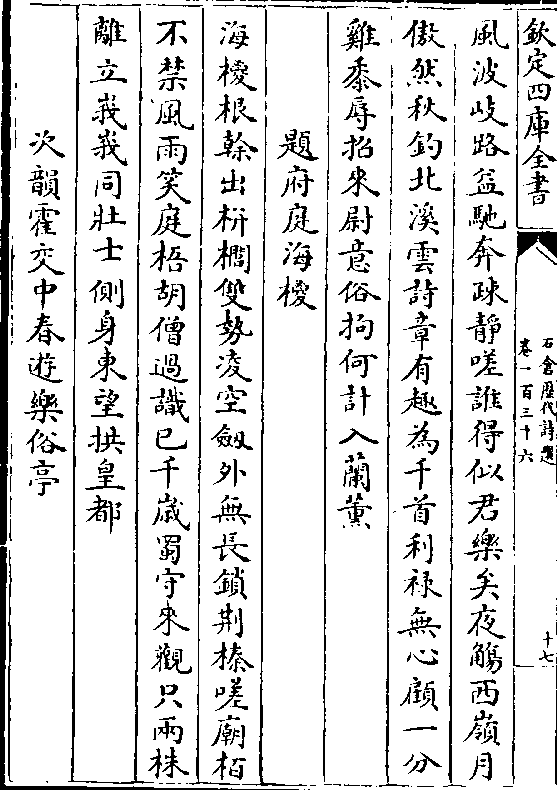 欽定四庫全書
石倉歷代詩選
卷一百三十六
十七
風波岐路益馳奔疎靜嗟誰得似君樂矣夜觴西嶺月
傲然秋釣北溪雲詩章有趣為千首利祿無心顧一分
雞黍辱招來尉意俗拘何計入蘭薰
題府庭海㯶
海㯶根榦出栟櫚雙勢凌空劔外無長鎖荆榛嗟廟栢
不禁風雨笑庭梧胡僧過識已千歲蜀守來觀只兩株
離立峩峩同壯士側身東望拱皇都
次韻霍交中春遊樂俗亭